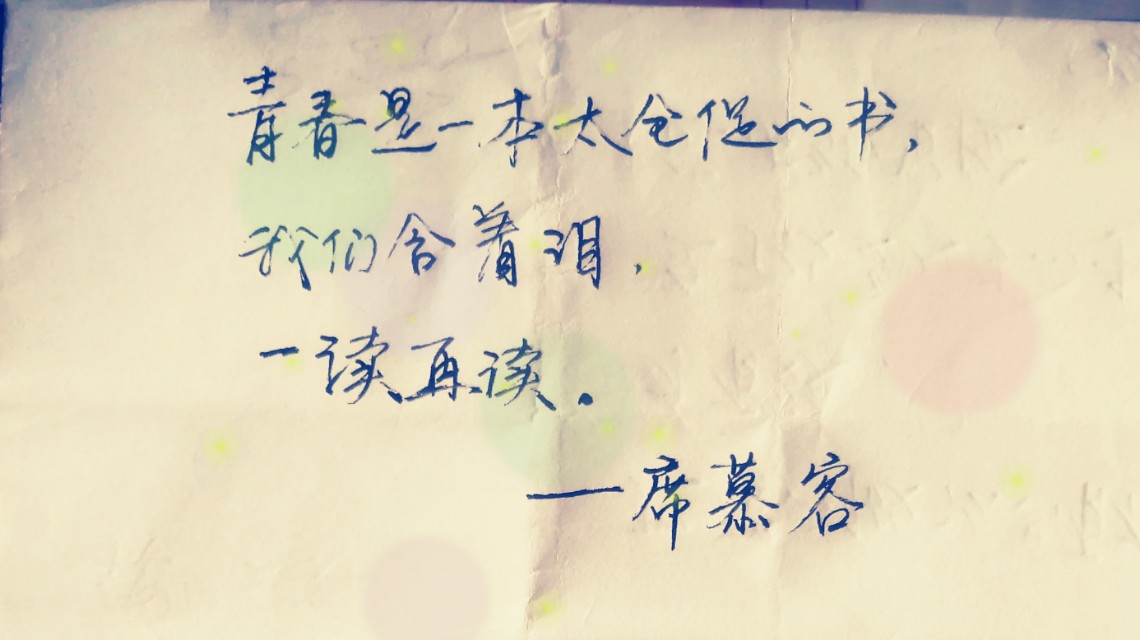 青春是一本太仓促的书，
我们含着泪，
一读再读。
——席慕容